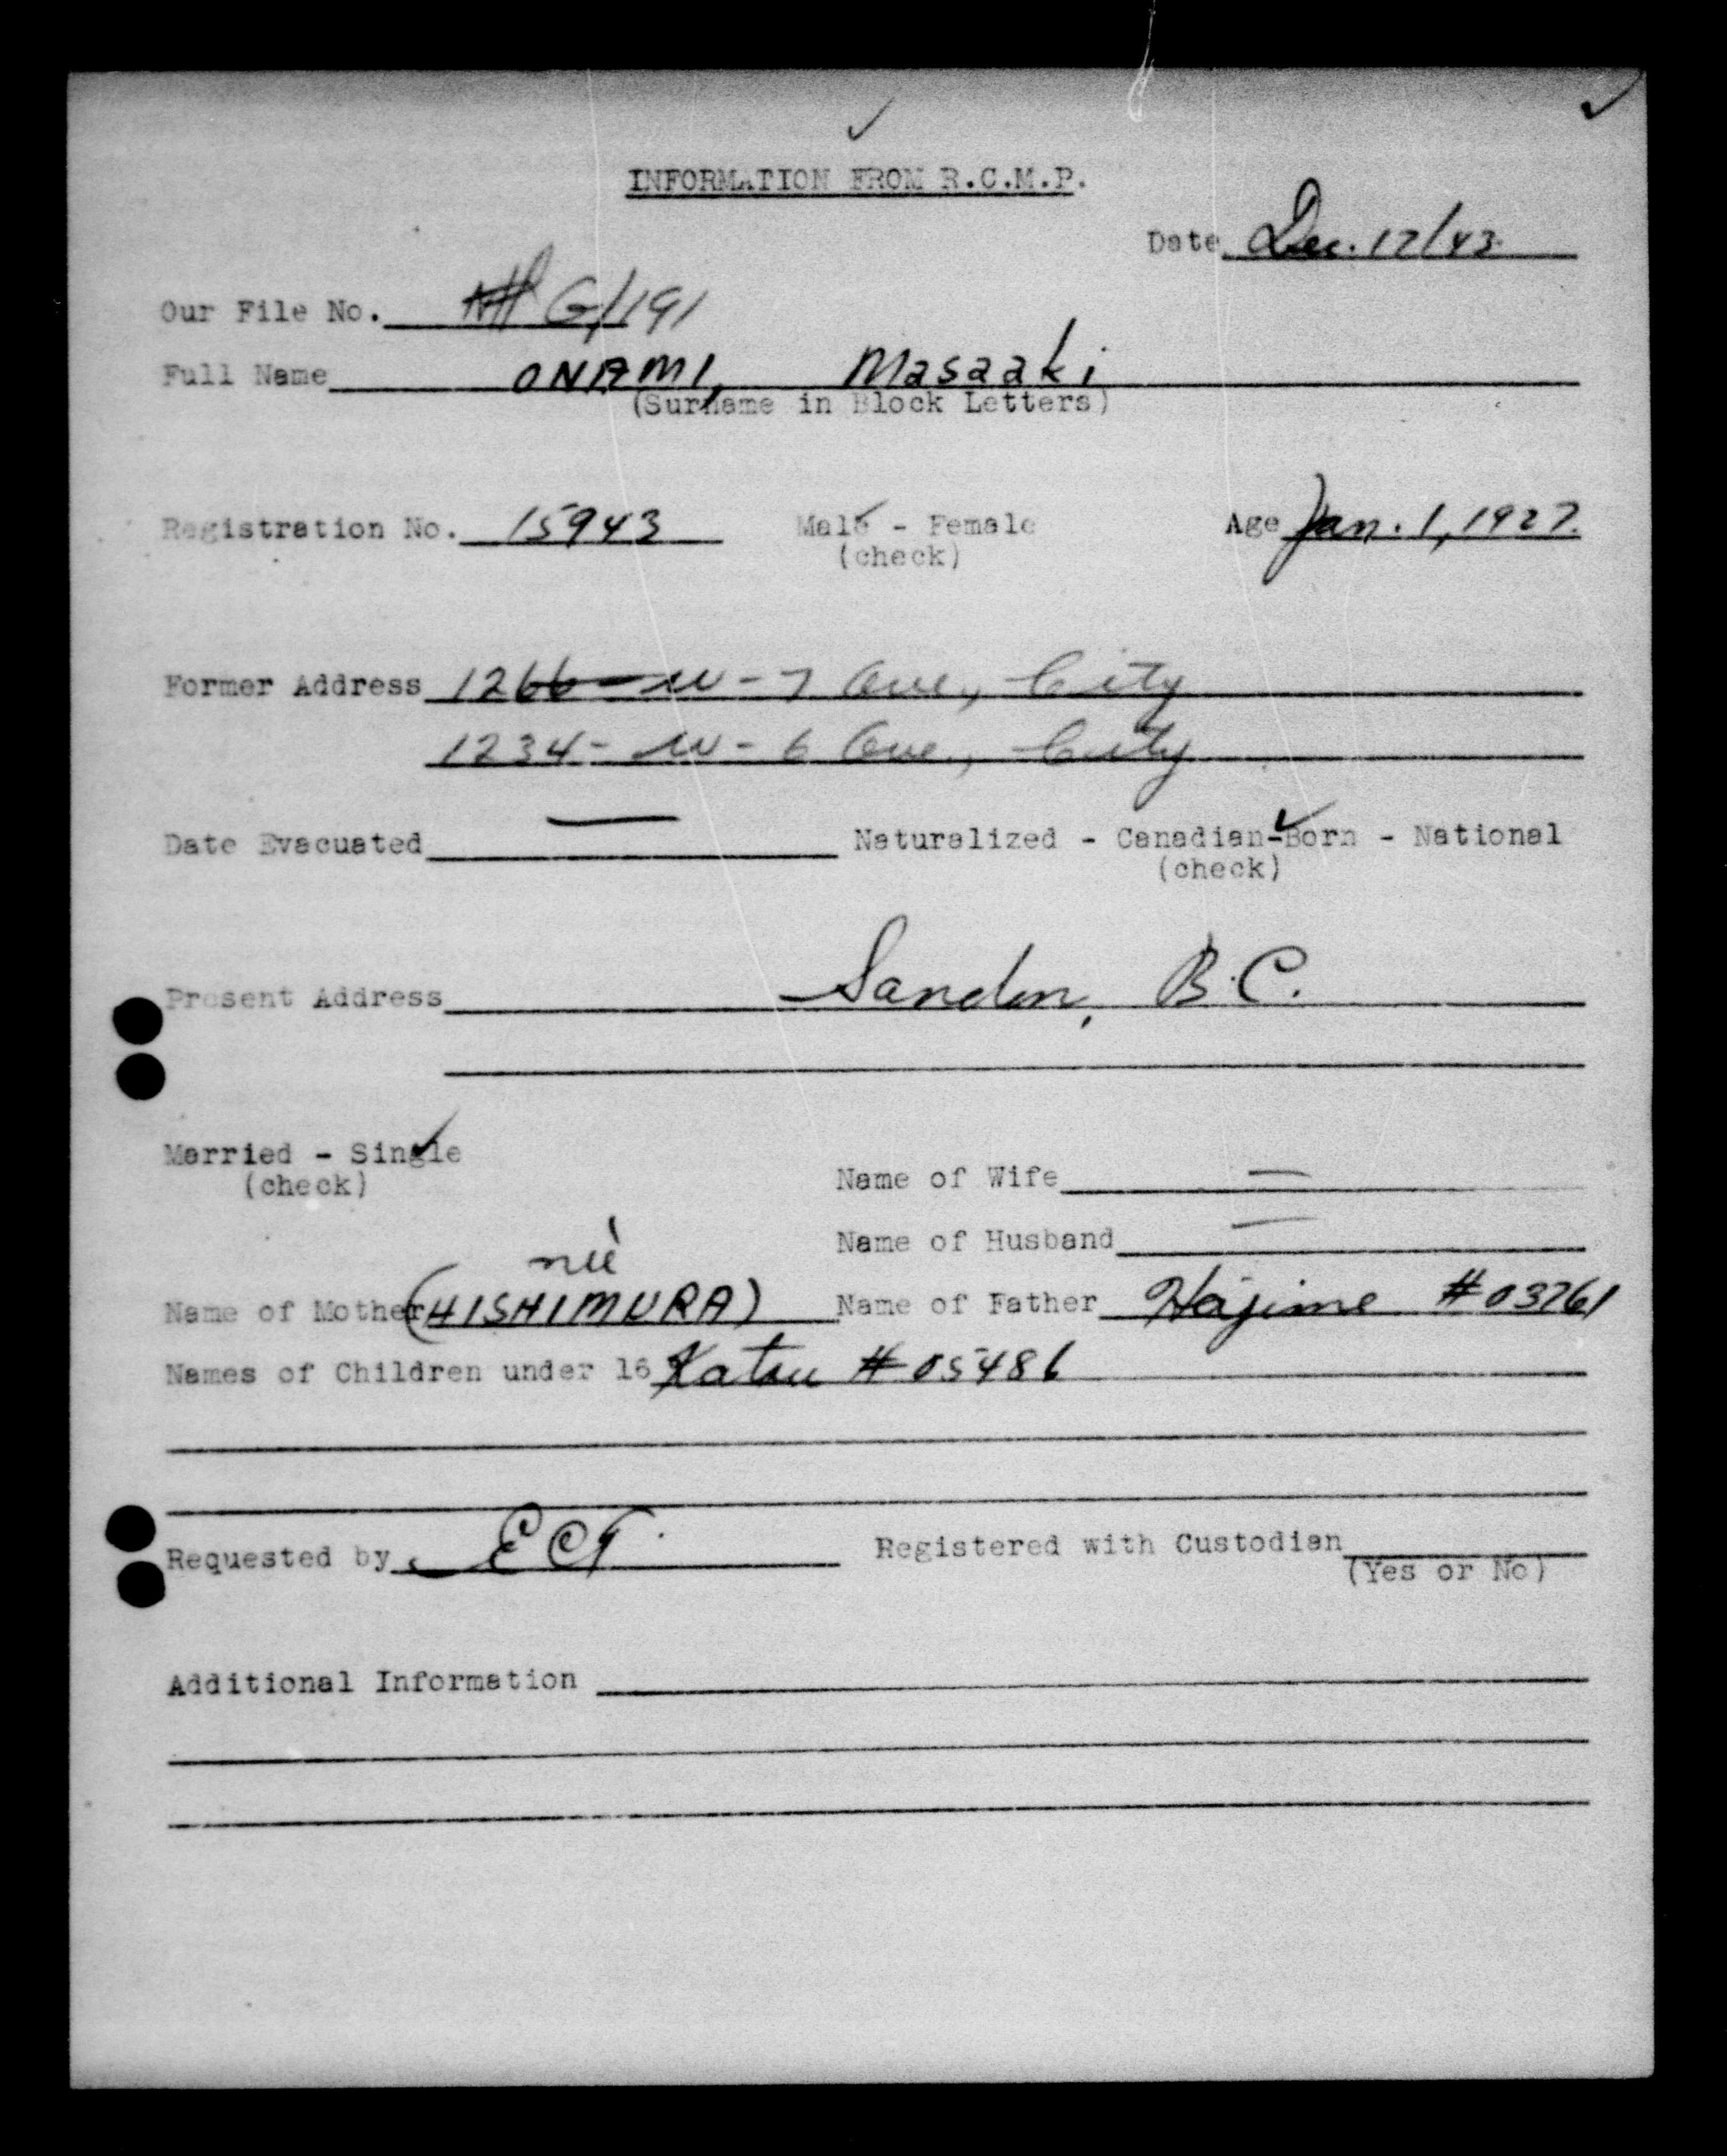 INFORMATION FROM R.C.M.P.
Date Dec. 17/43
Our File No. G/191
Full Name ONAMI, Masaaki
(Surname in Block Letters)
Registration No. 15943 Male - Female Age Jan. 1, 1927.
(check)
Former Address 1266 - W - 7 Ave, City
1234 - W - 6 Ave., City
Date Evacuated — Naturalized - Canadian-Born - National
(check)
Present Address Sandon, B.C.
Married - Single
(check)
Name of Wife —
Name of Husband —
neé
Name of Mother (HISHIMURA) Name of Father Hajime #03761
Names of Children under 16 Katsu #05486
Requested by Registered with Custodian
(Yes or No)
Additional Information